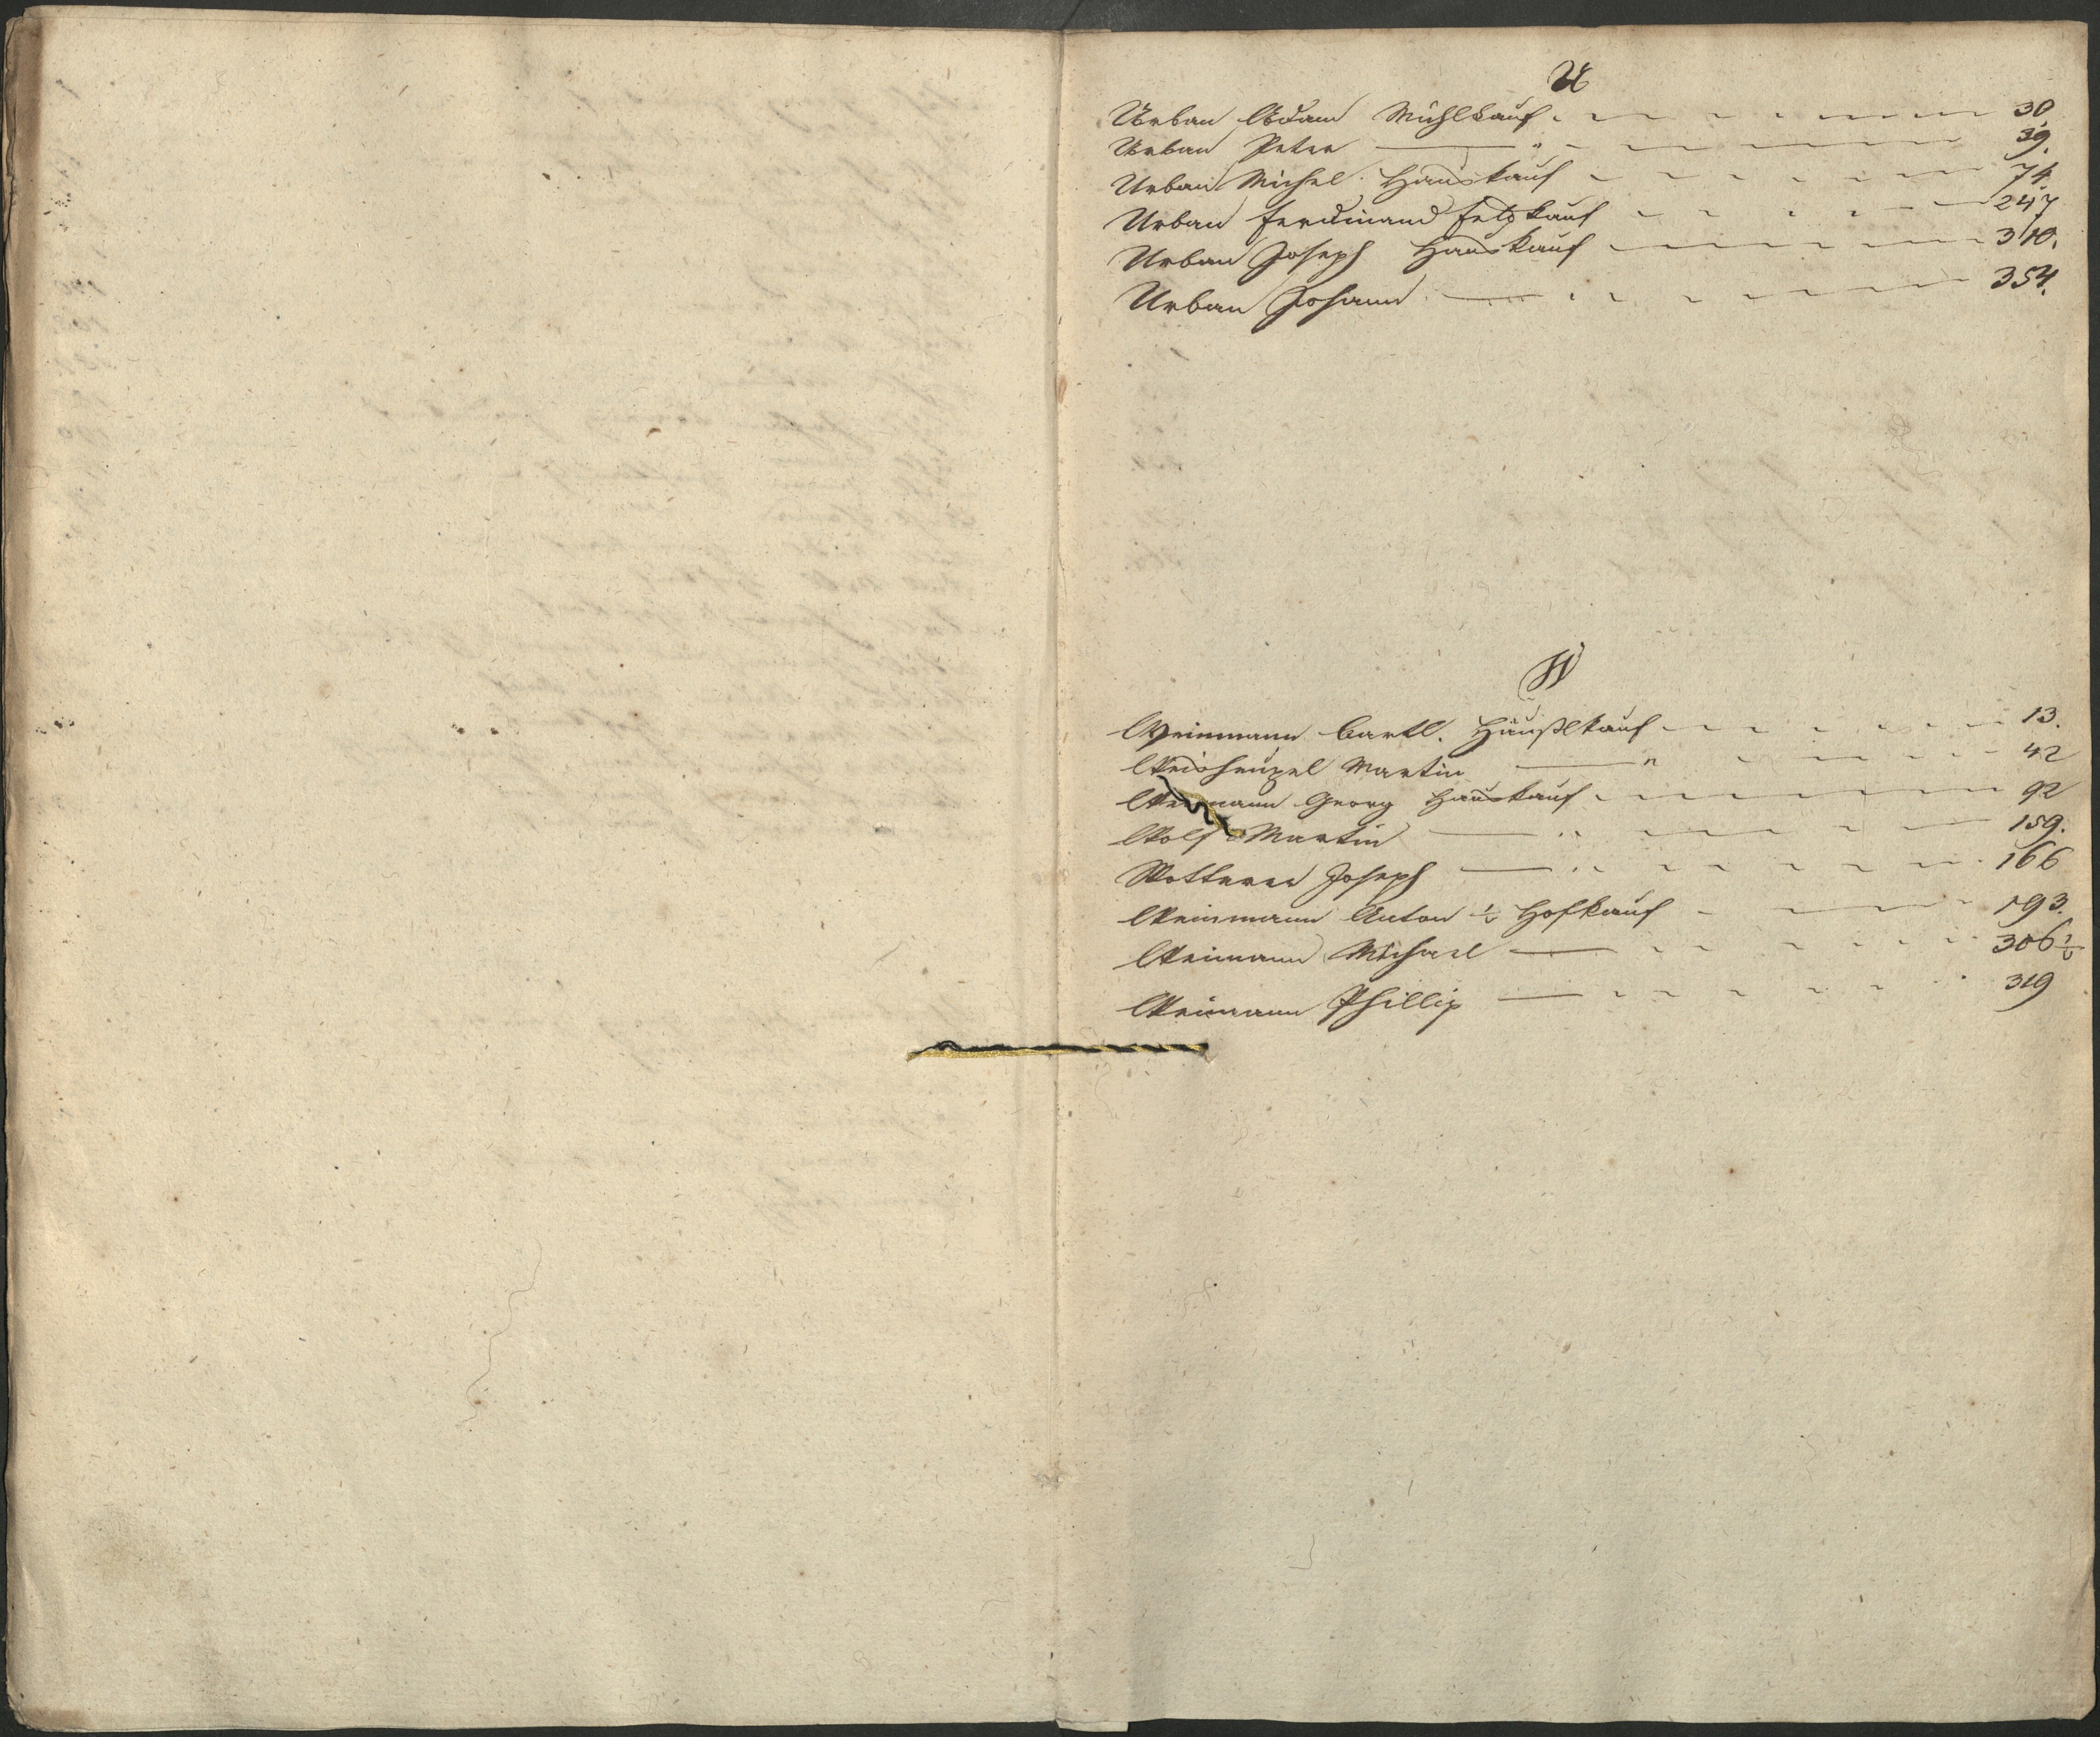 U
Urban Adam Mühlkauf 30
Urban Peter — " 39.
Urban Michel Hauskauf 74
Urban Ferdinand Feldkauf 247
Urban Joseph Hauskauf 310.
Urban Johann — 354.
W
Weinmann Bartl. Häußlkauf 13.
Weisheupel Martin — " 42
Weinmann Georg Hauskauf 92
Wolf Martin — " 159.
Wotterer Joseph — " 166
Weinmann Anton ½ Hofkauf 193.
Weimann Michael — 306½
Weimann Phillip — 319